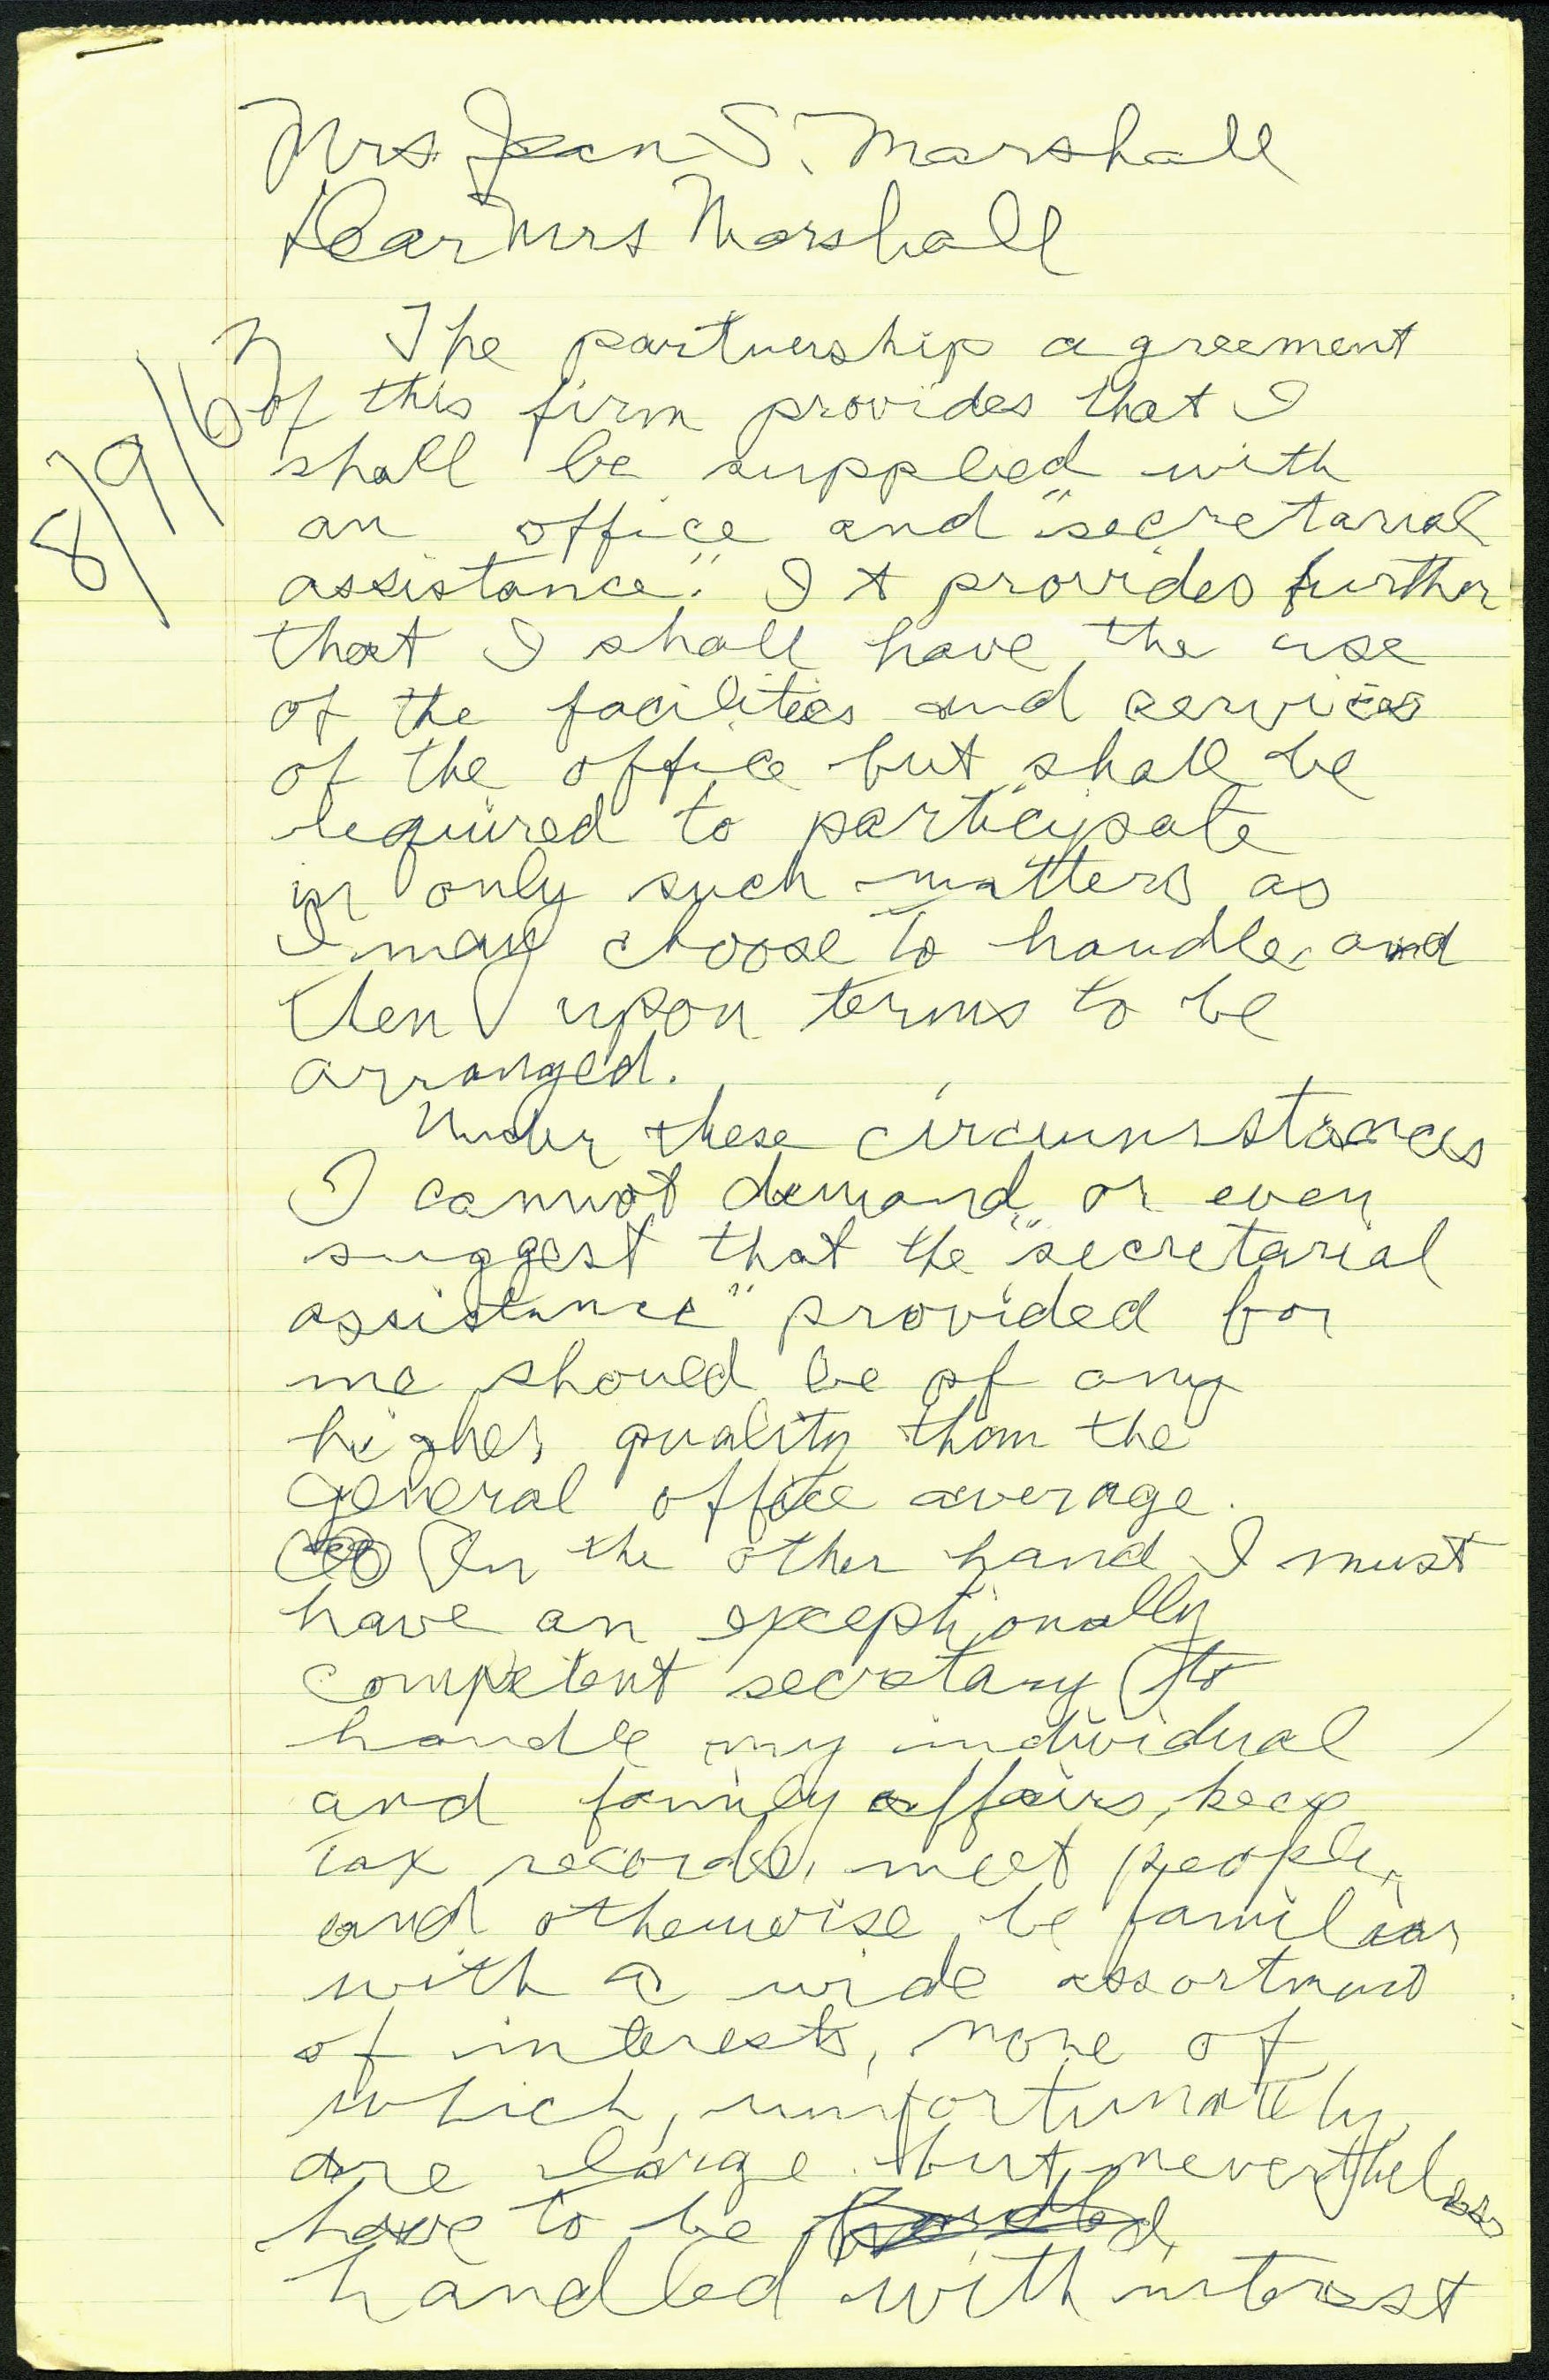 Mrs. Jean S. Marshall
Dear Mrs Marshall
8/9/67
The partnership agreement
of this firm provides that I
shall be supplied with
an office and "secretarial
assistance." It provides further
that I shall have the use
of the facilities and services
of the office but shall be
required to participate
in only such matters as
I may choose to handle, and
then upon terms to be
arranged.
Under these circumstances
I cannot demand or even
suggest that the "secretarial
assistance" provided for
me should be of any
higher quality than the
general office average.
On the other hand I must
have an exceptionally
competent secretary to
handle my individual
and family affairs, keep
tax records, meet people,
and otherwise be familiar
with a wide assortment
of interests, none of
which, unfortunately,
are large but nevertheless
have to be handled
handled with interest